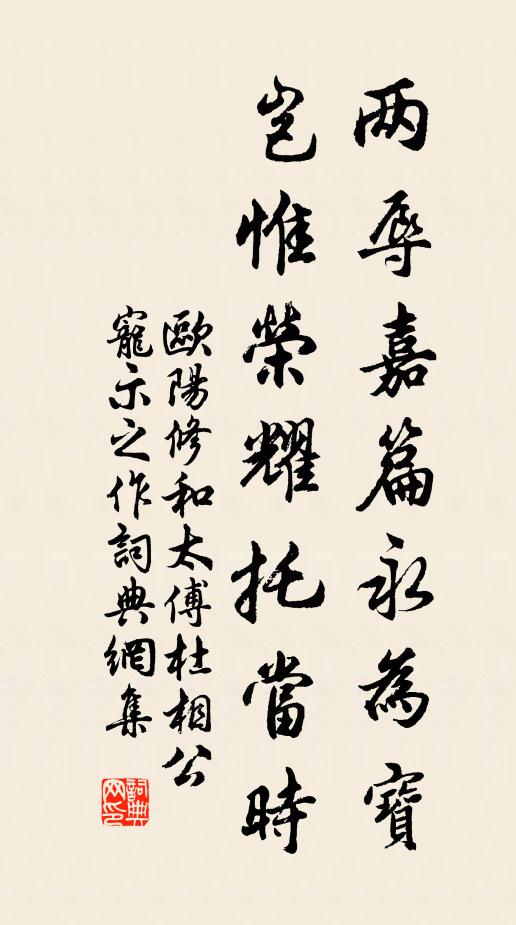 两辱嘉篇永為寶
豈惟榮耀托當時
歐陽修和太傅杜相公
寵示之作詞典網集
詞典
网印